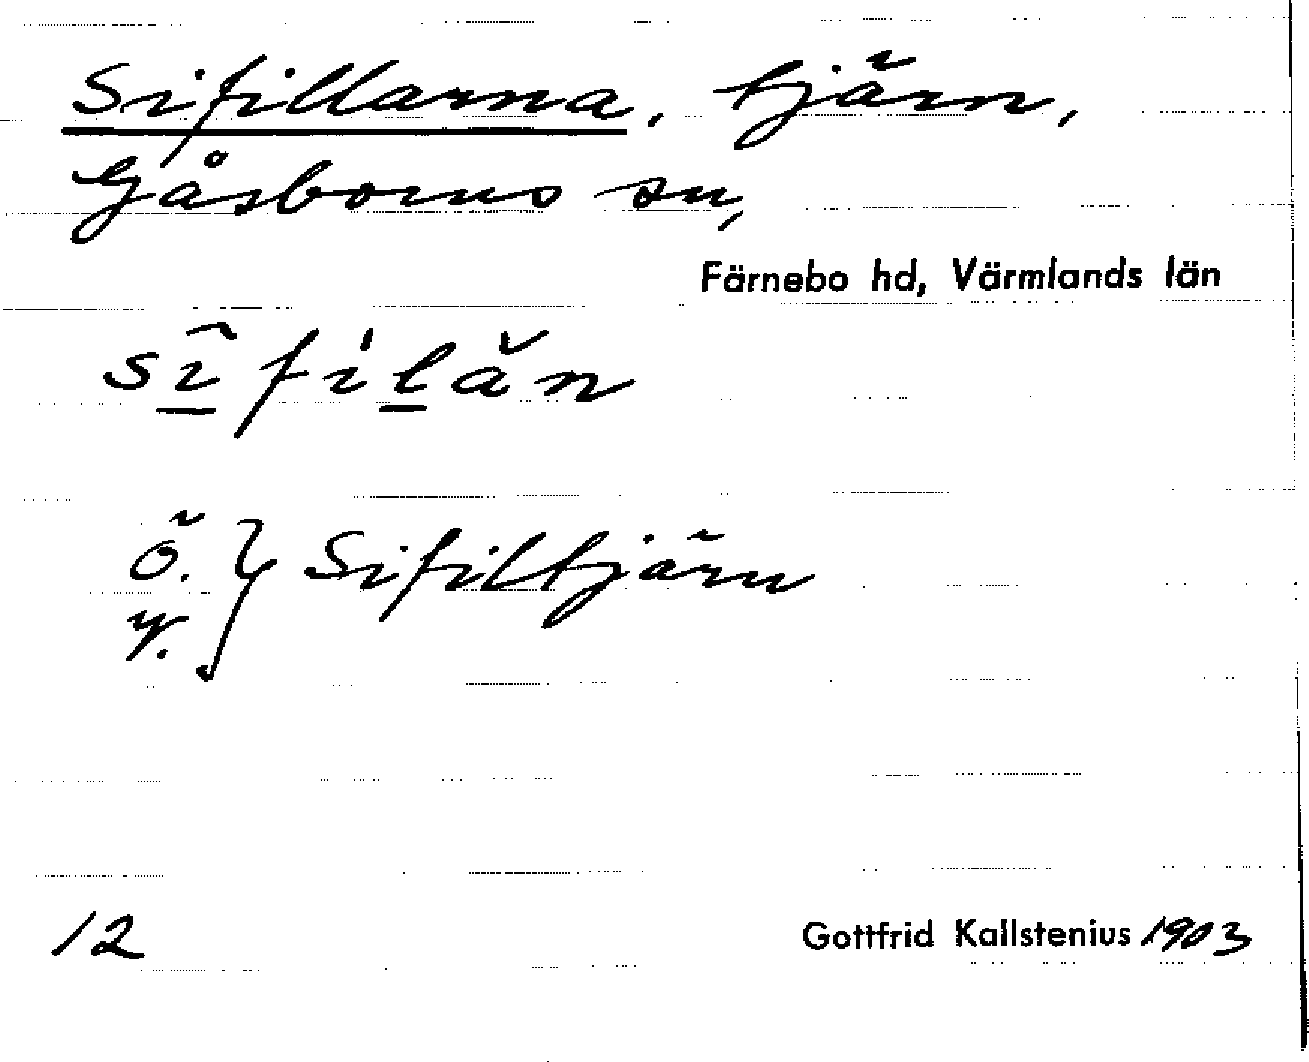 Sifillarna, tjärn,
Gåsborns sn,
Färnebo hd, Värmlands län
sî fi̍ lăn
Ö. } Sifiltjärn
Y.
12 Gottfrid Kallstenius 1903